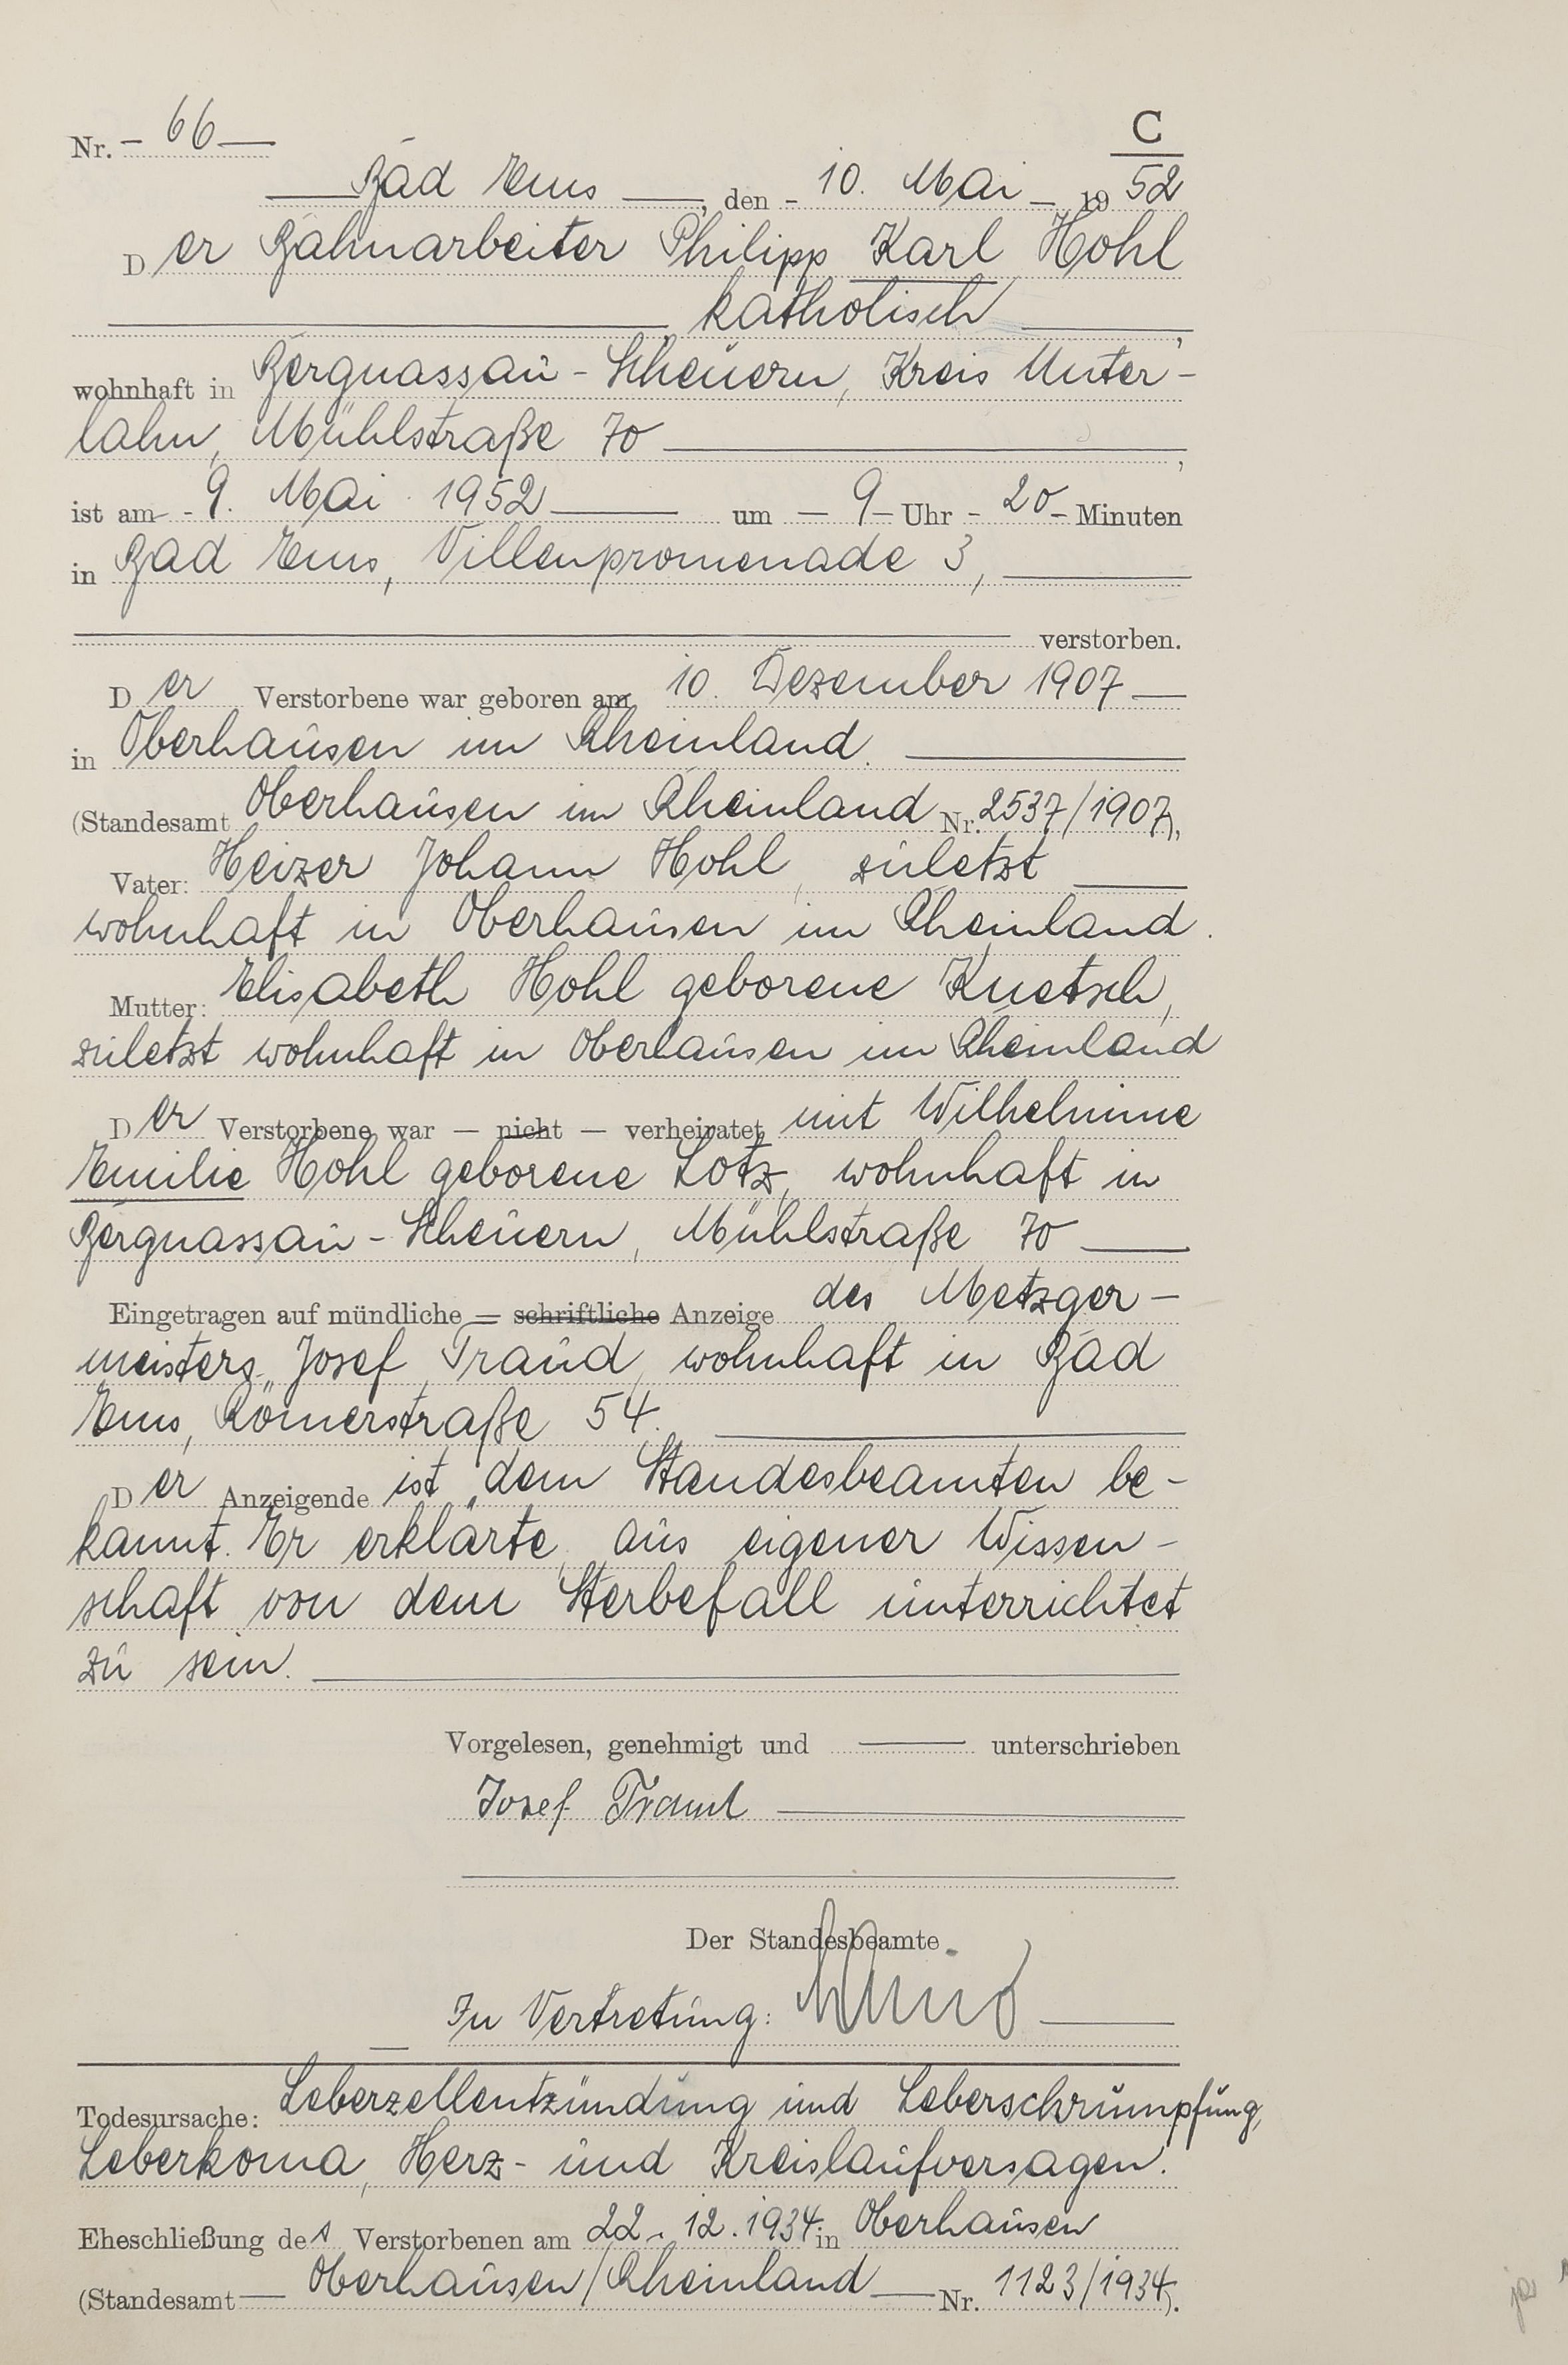 Nr. - 66 —
C
Bad Ems —, den - 10. Mai - 19 52
Der Bahnarbeiter Philipp Karl Hohl
katholisch —,
wohnhaft in Bergnassau - Scheuern, Kreis Unter-
lahn, Mühlstraße 70 —,
ist am - 9. Mai 1952 — um — 9 - Uhr - 20 - Minuten
in Bad Ems, Villenpromenade 3, —
verstorben.
Der Verstorbene war geboren am 10. Dezember 1907 —
in Oberhausen im Rheinland. —
(Standesamt Oberhausen im Rheinland Nr. 2537/1907),
Vater: Heizer Johann Hohl, zuletzt —
wohnhaft in Oberhausen im Rheinland.
Mutter: Elisabeth Hohl geborene Knetsch,
zuletzt wohnhaft in Oberhausen im Rheinland
Der Verstorbene war — nicht — verheiratet mit Wilhelmine
Emilie Hohl geborene Lotz, wohnhaft in
Bergnassau - Scheuern, Mühlstraße 70 —
Eingetragen auf mündliche — schriftliche Anzeige des Metzger-
meisters Josef Traud, wohnhaft in Bad
Ems, Römerstraße 54. —
Der Anzeigende ist dem Standesbeamten be-
kannt. Er erklärte, aus eigener Wissen-
schaft von dem Sterbefall unterrichtet
zu sein. —
Vorgelesen, genehmigt und — unterschrieben
Josef Traud —
Der Standesbeamte
In Vertretung: —
Todesursache: Leberzellentzündung und Leberschrumpfung,
Leberkoma, Herz- und Kreislaufversagen.
Eheschließung des Verstorbenen am 22. 12. 1934 in Oberhausen
(Standesamt — Oberhausen/Rheinland — Nr. 1123/1934).